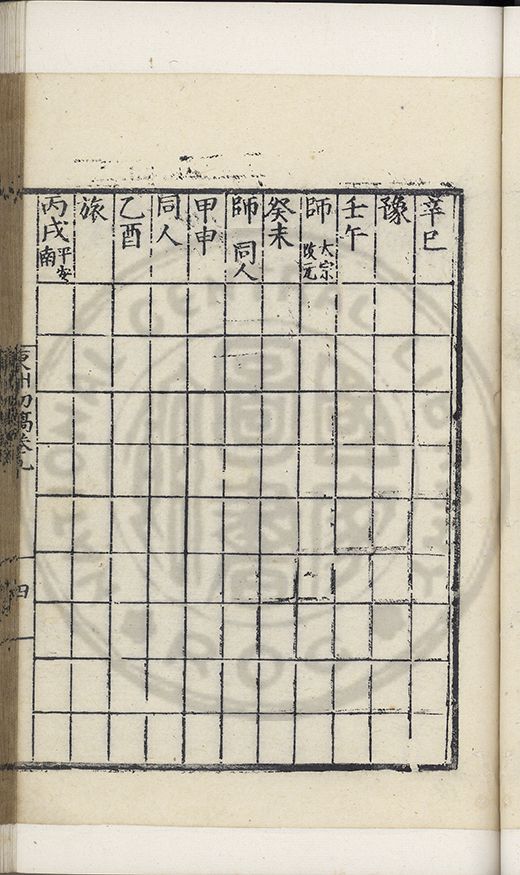 辛巳
豫
壬午
師 太宗改元
癸未
師 同人
甲申
同人
乙酉
旅
丙戌 平安南
初稿卷九
四
NATIONAL CENTRAL LIBRARY
ROC